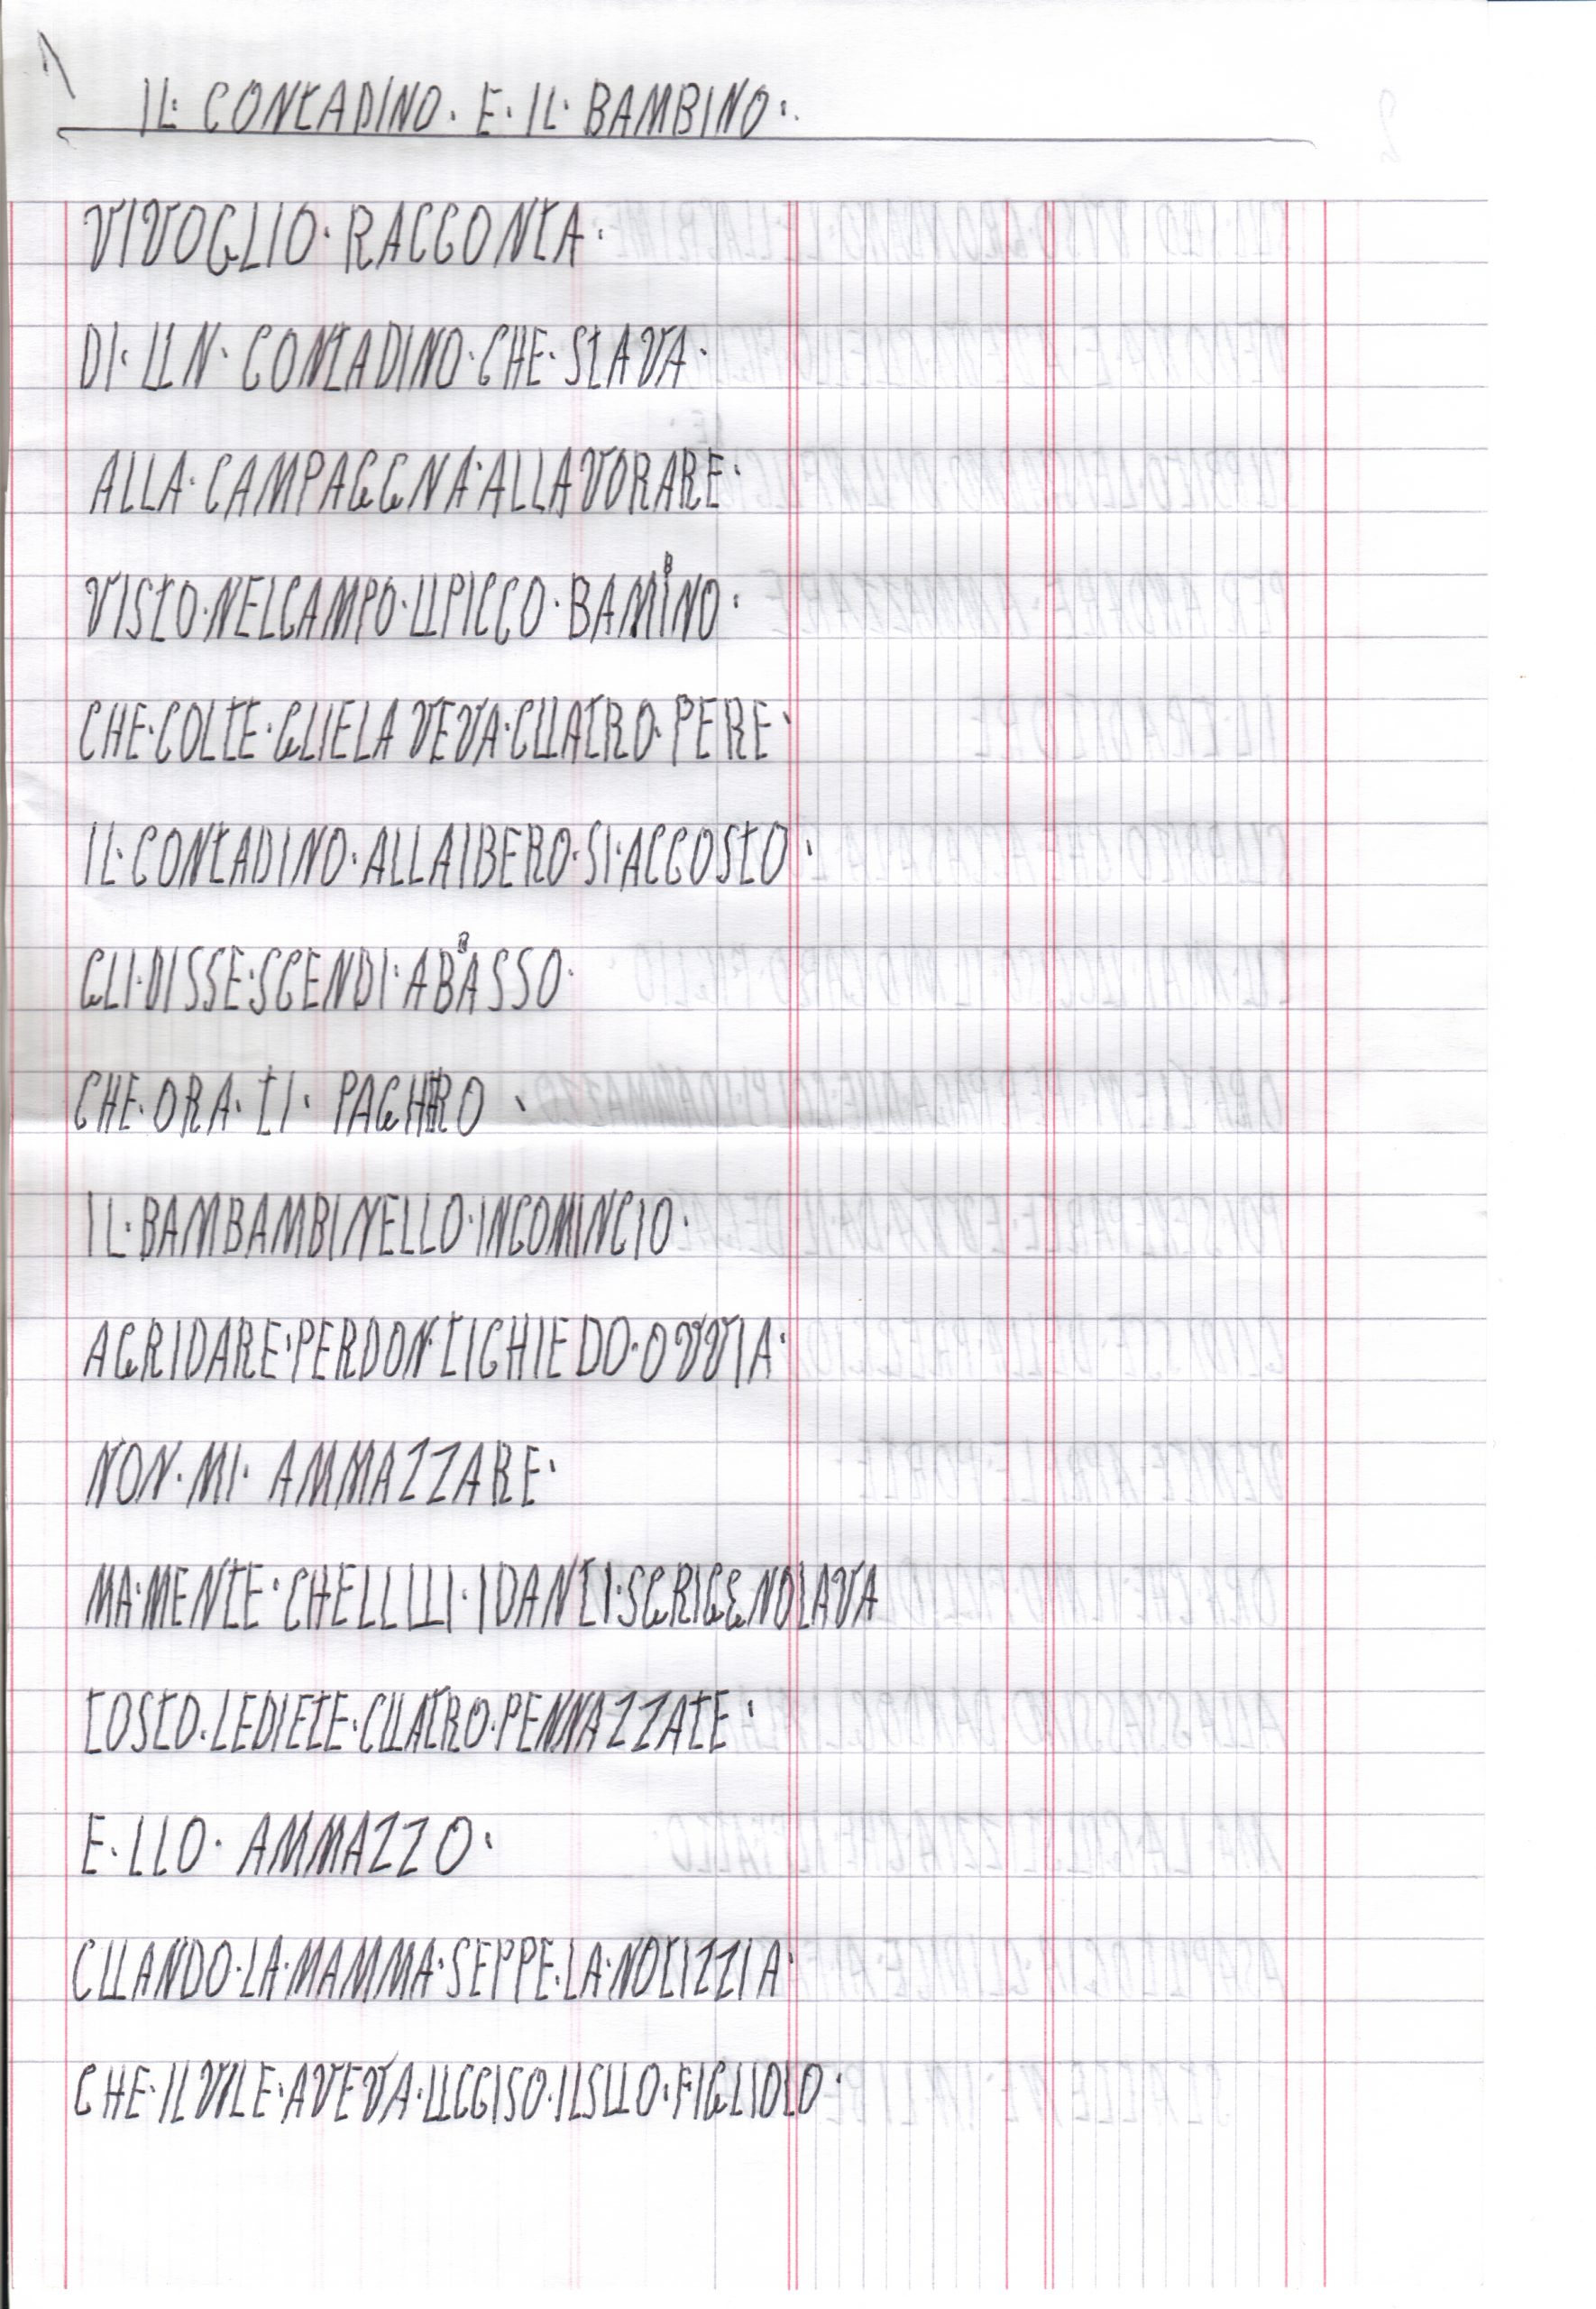 1
IL· CONTADINO· E· IL· BAMBINO·.
VIVOGLIO· RACCONTA·
DI· UN· CONTADINO· CHE· STAVA·
ALLA· CAMPAGGNA· ALLAVORARE·
VISTO· NELCAMPO· UPICCO· BAMBINO·
CHE· COLTE· GLIELA VEVA· CUATRO· PERE·
IL· CONTADINO· ALLAIBERO· SI· ACCOSTO·
GLI· DISSE· SCENDI· ABBASSO·
CHE· ORA· TI· PAGHRO·
IL· BAMBAMBINELLO· INCOMINCIO·
AGRIDARE· PERDON· TICHIEDO· OVVIA·
NON· MI· AMMAZZARE·
MA· MENTE· CHELLUI· IDANTI· SGRIGGNOLAVA
TOSTO· LEDIETE· CUATRO· PENNAZZATE·
E· LLO· AMMAZZO·
CUANDO· LA· MAMMA· SEPPE· LA· NOTIZZIA·
CHE· ILVILE· AVEVA· UCCISO· ILSUO· FIGLIOLO·